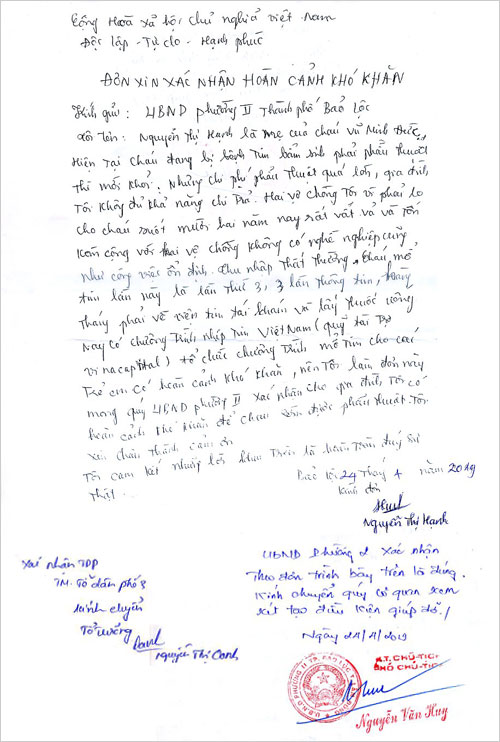 Cộng Hoà xã hội chủ nghĩa việt Nam
Độc lập - Tự do - Hạnh phúc
ĐƠN XIN XÁC NHẬN HOÀN CẢNH KHÓ KHĂN
Kính gửi: UBND phường II Thành phố Bảo Lộc
Tôi tên: Nguyễn Thị Hạnh là mẹ của cháu vũ Minh Đức,
Hiện Tại cháu đang bị bệnh Tim bẩm sinh phải phẩu Thuật
thì mới khỏi. Nhưng chi phí phẩu Thuật quá lớn, gia đình
Tôi không đủ khả năng chi Trả. Hai vợ chồng Tôi vì phải lo
cho cháu suốt mười hai năm nay rất vất vả và tốn
kém cộng với hai vợ chồng không có nghề nghiệp cũng
như công việc ổn định. Thu nhập Thất Thường. Cháu mổ
tim lần này là lần Thứ 3, 3 lần Thông tim, hàng
Tháng phải về viện tim tái khám và lấy Thuốc uống
Nay có chương Trình nhịp Tim Việt Nam (quỹ tài Trợ
vinacapital) tổ chức chương Trình mổ Tim cho các
Trẻ em có hoàn cảnh khó khăn, nên Tôi làm đơn này
mong quý UBND phường II xác nhận cho gia đình Tôi có
hoàn cảnh khó khăn để cháu sớm được phẩu Thuật. Tôi
xin chân Thành cảm ơn
Tôi cam kết những lời khai Trên là hoàn Toàn đúng sự
Thật.
Bảo lộc 24 Tháng 4 năm 2019
Kính đơn
Nguyễn Thị Hạnh
Xác nhận TDP
TM. Tổ dân phố 3
kính chuyển
Tổ trưởng
Nguyễn Thị Oanh
UBND Phường 2 xác nhận
Theo đơn trình bày trên là đúng.
Kính chuyển quý cơ quan xem
xét tạo điều kiện giúp đỡ./
Ngày 24/4/2019
K.T. CHỦ TỊCH
PHÓ CHỦ TỊCH
Nguyễn Văn Huy